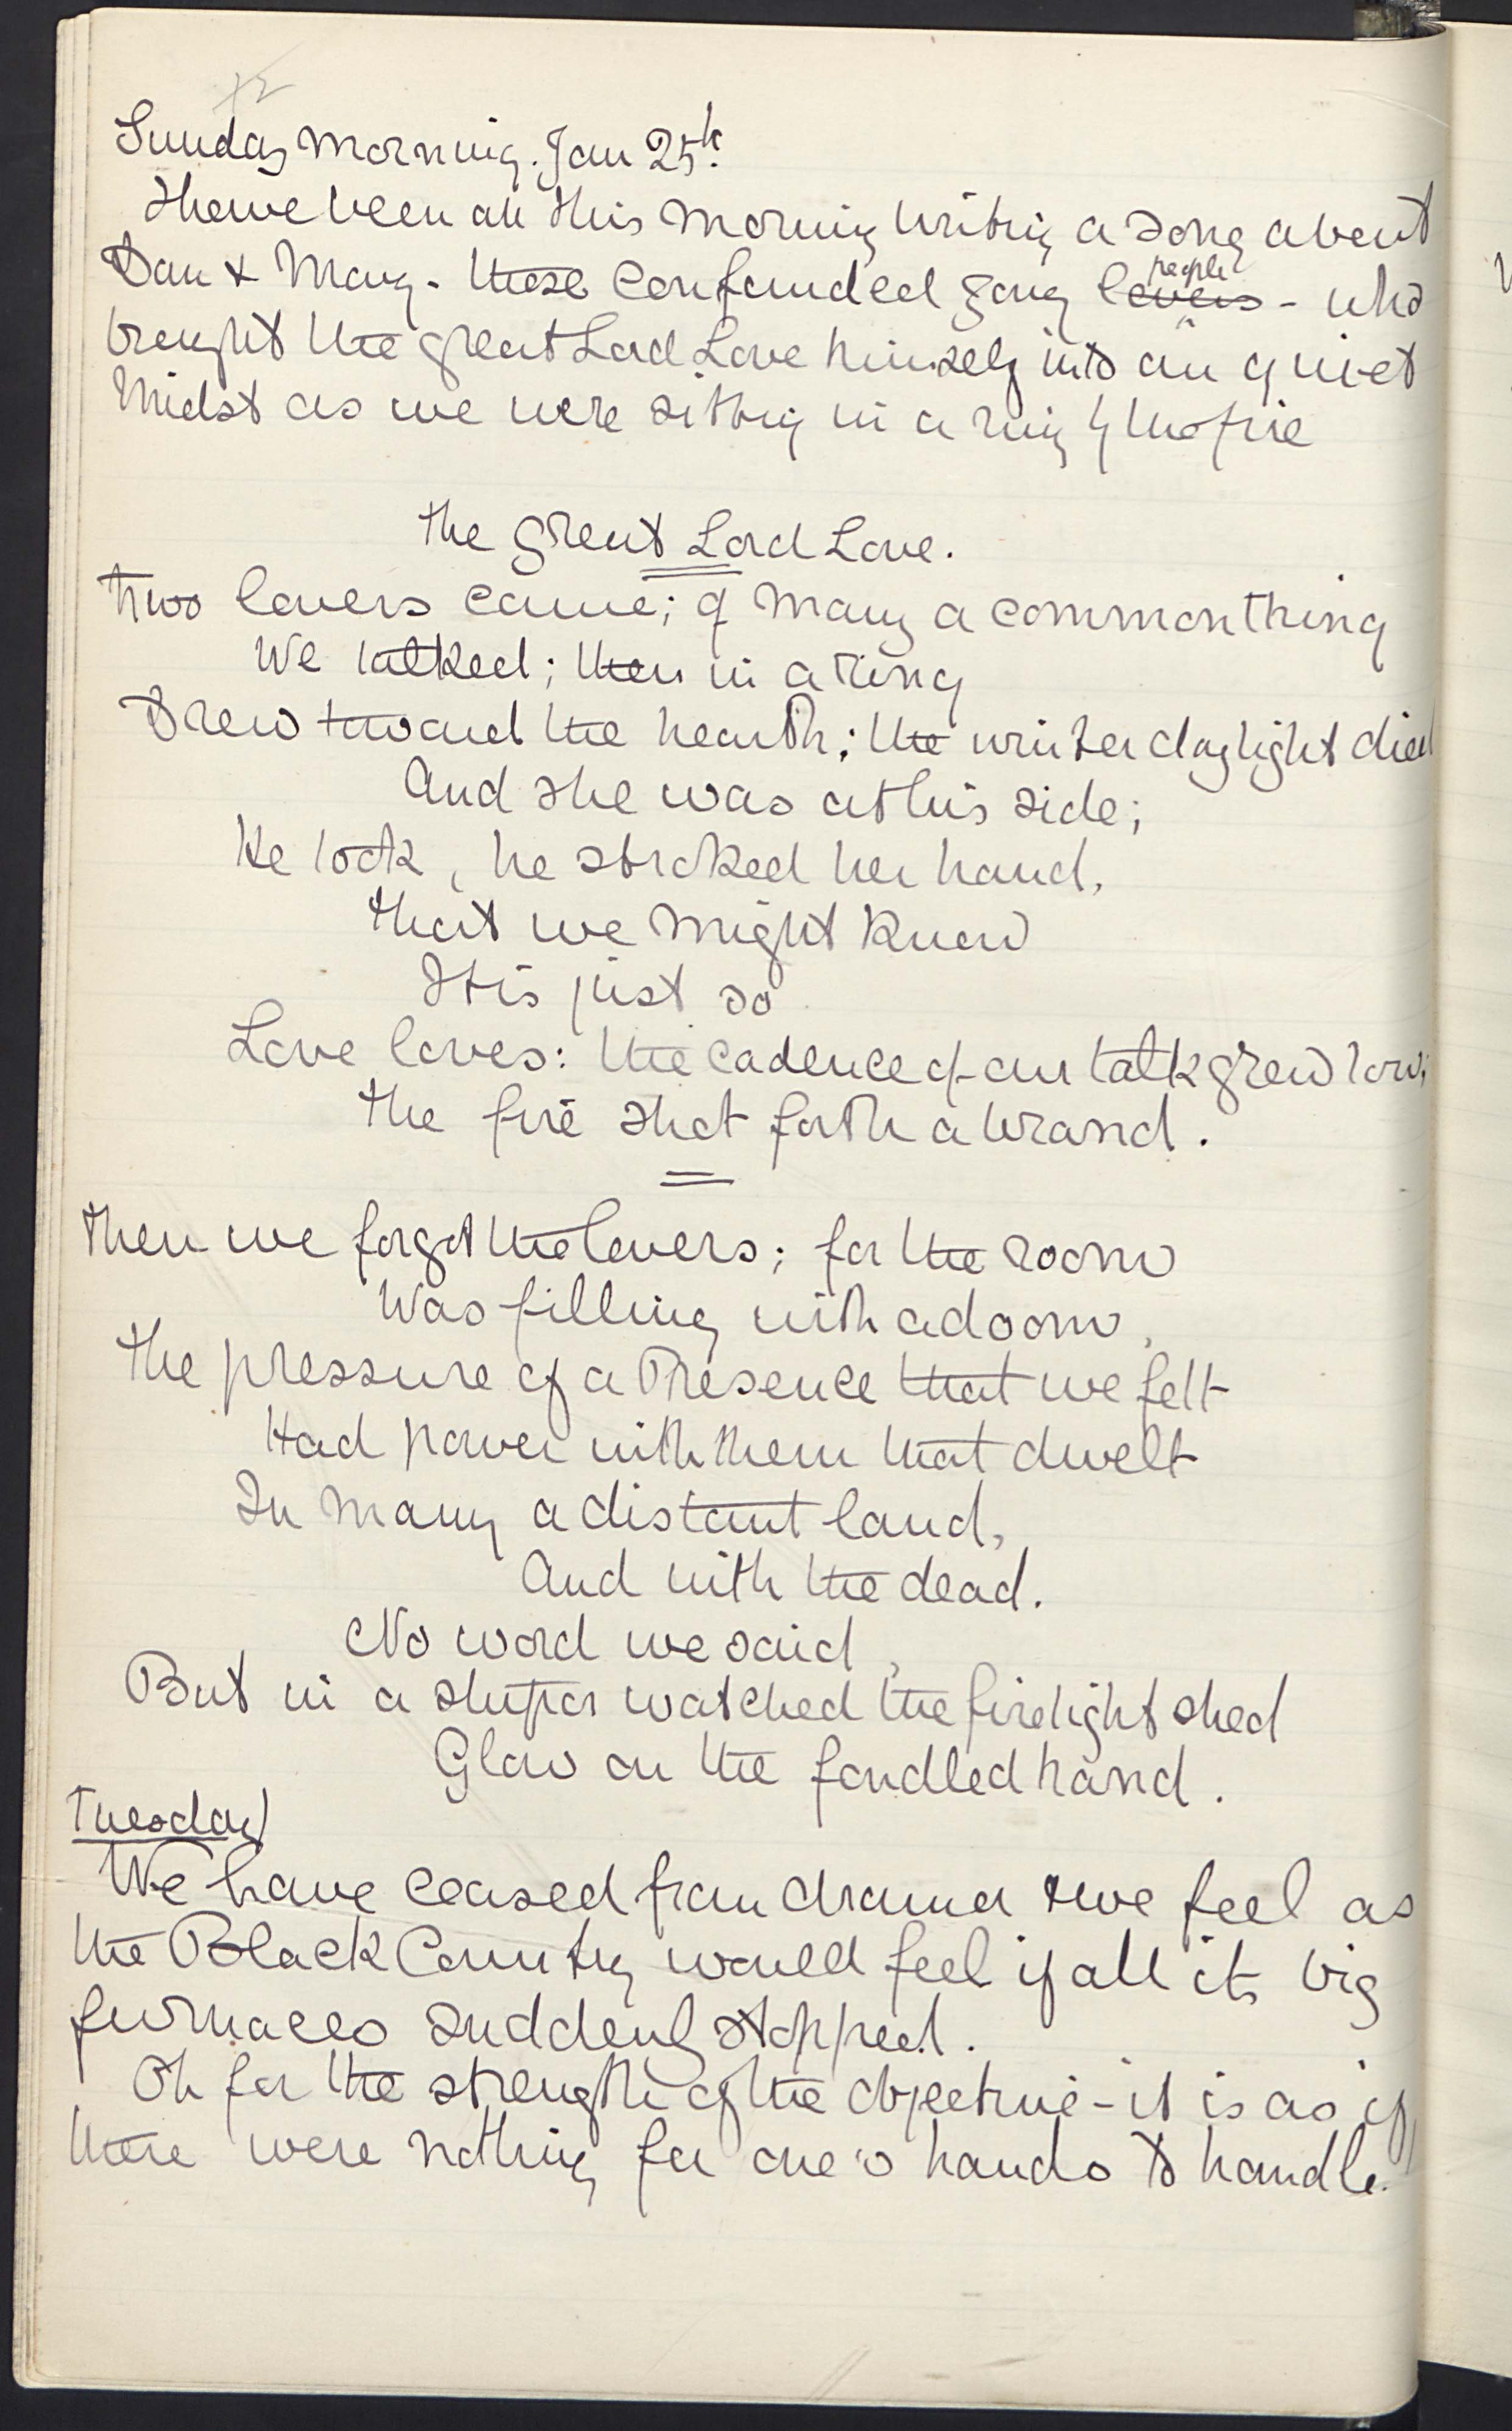 Sunday morning. Jan 25th.
I have been all this morning writing a song about
Dan & Mary - these confounded young lovers people - who
brought the great Lord Love himself into our quiet
midst as we were sitting in a ring by the fire
The great Lord Love.
Two lovers came; of many a common thing
We talked; then in a ring
Drew toward the hearth: the winter daylight died
And she was at his side;
He took, he stroked her hand,
That we might know
It is just so
Love loves: the cadence of our talk grew low;
The fire shot forth a brand.
Then we forgot the lovers; for the room
Was filling with a doom,
The pressure of a Presence that we felt
Had power with them that dwelt
In many a distant land,
And with the dead.
No word we said,
But in a stupor watched the firelight shed
Glow on the fondled hand.
Tuesday
We have ceased from drama & we feel as
the Black Country would feel if all its big
furnaces suddenly stopped.
Oh for the strength of the objective - it is as if
there were nothing for one's hands to handle.